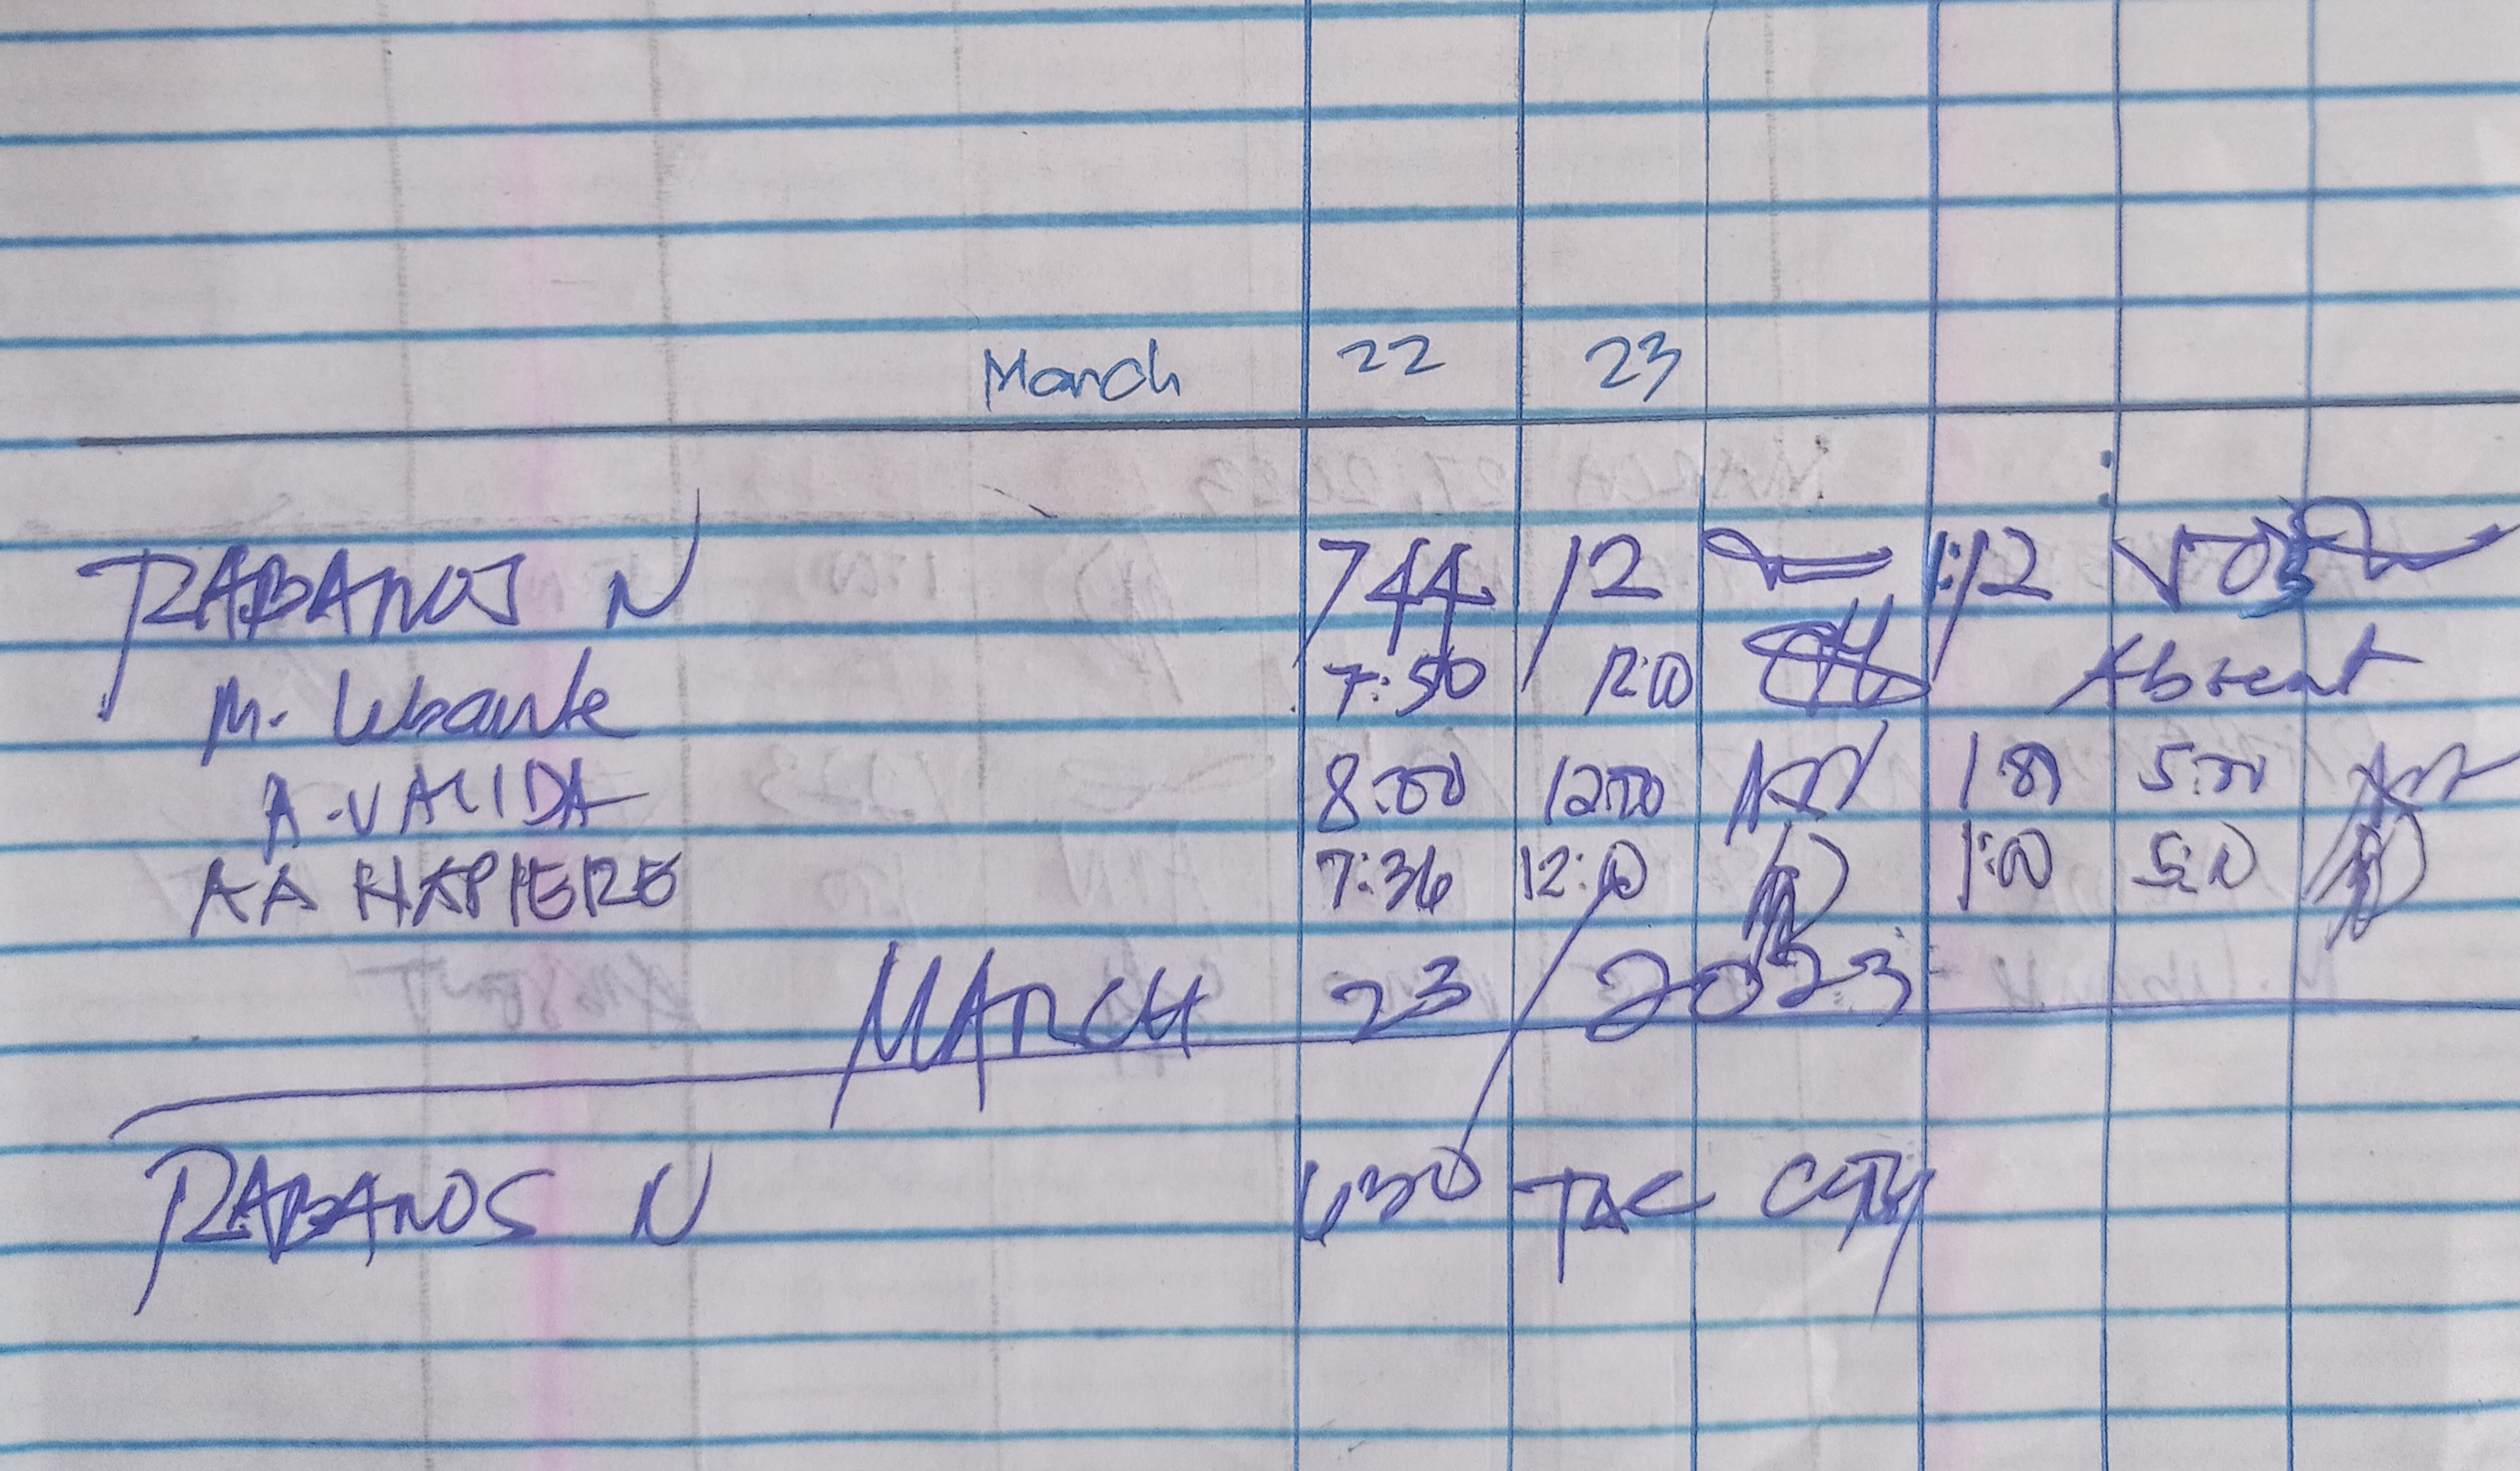 March 22 23
RABANOS N 744 12 1:12 503
M. 7:50 12:00 Absent
A. VALIDA 8:00 12:00 1:00 5:00
AA HAPIERE 7:36 12:00 1:00 5:00
MARCH 23 2023
RABANOS N 630 TAC CITY